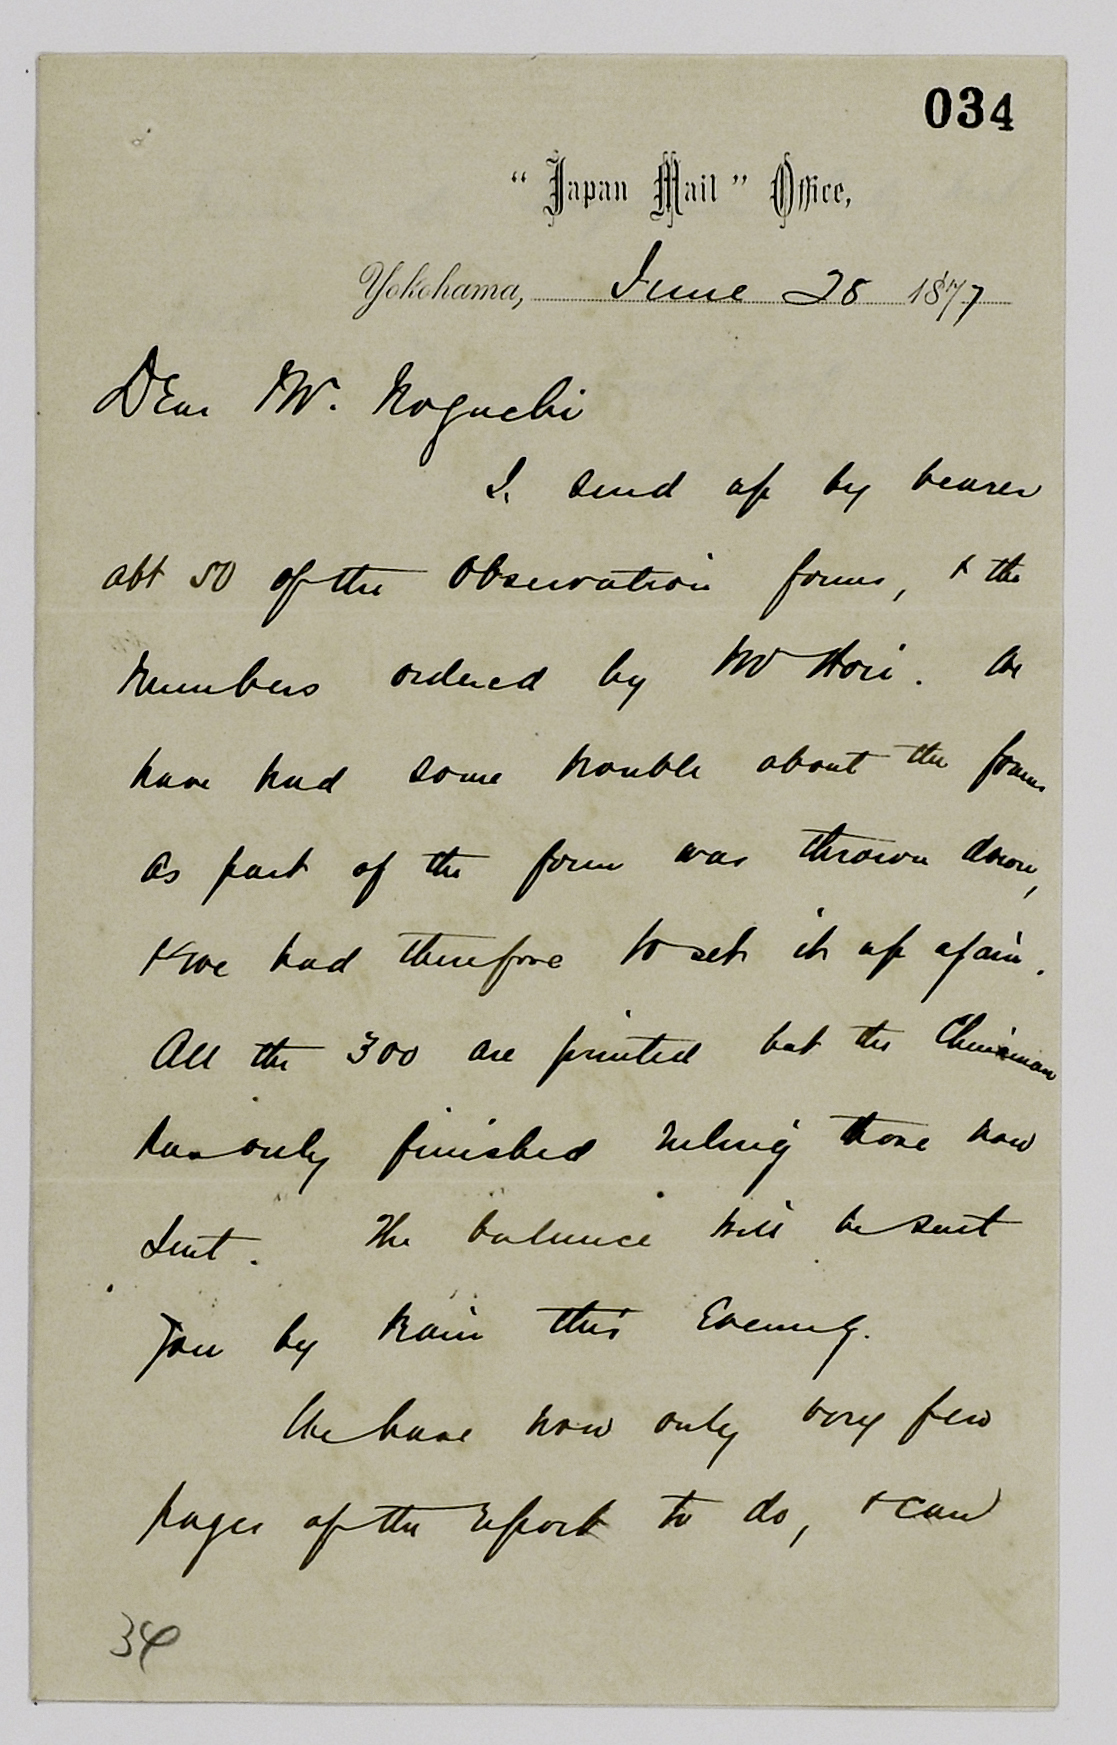 034
“Japan Mail” Office,
Yokohama, June 28 1877
Dear Mr. Noguchi
I send up by bearer
abt 50 of the Observation forms, & the
numbers ordered by Mr Hori. We
have had some trouble about the forms
as part of the form was thrown down,
& we had therefore to set it up again.
All the 300 are printed but the Chinaman
has only finished ruling those now
sent. The balance will be sent
you by train this Evening.
We have now only very few
pages of the report to do, & can
34